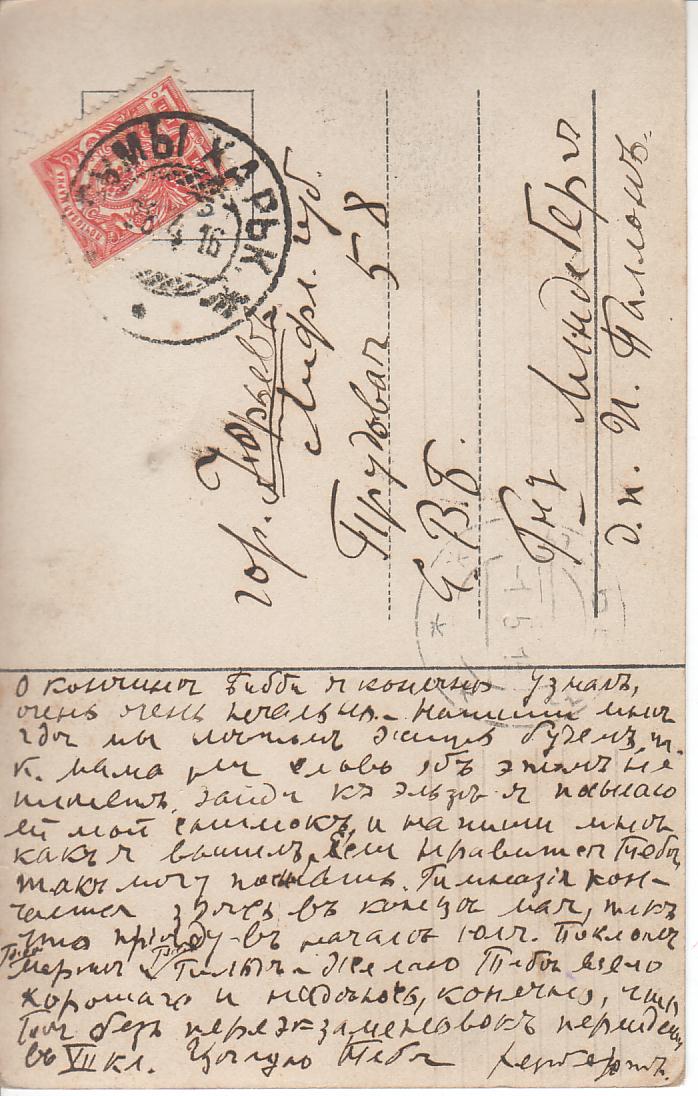 СУМЫ ХАРЬК.
28 4 16
гор. Юрьевъ
Лифл. губ.
Прудовая 58
Е. В. Б.
Г-жѣ Линдбергъ
д. п. И. Паллонъ.
О кончинѣ Бибби я конечно узналъ,
очень очень печально. Напиши мнѣ
гдѣ мы лѣтомъ жить будемъ, т.
к. мама ни слова объ этомъ не
пишетъ. Зайди къ Эльзѣ я послалъ
ей мой снимокъ, и напиши мнѣ
какъ я вышелъ, если нравится Тебѣ,
такъ могу послать. Гимназія кон-
чается здѣсь въ концѣ мая, такъ
что пріѣду въ началѣ іюня. Поклонъ
Желаю Тебѣ всего
хорошаго и надѣюсь, конечно, что
Ты безъ переэкзаменовокъ перейдешь
въ VII кл. Цѣлую Тебя Хербертъ.